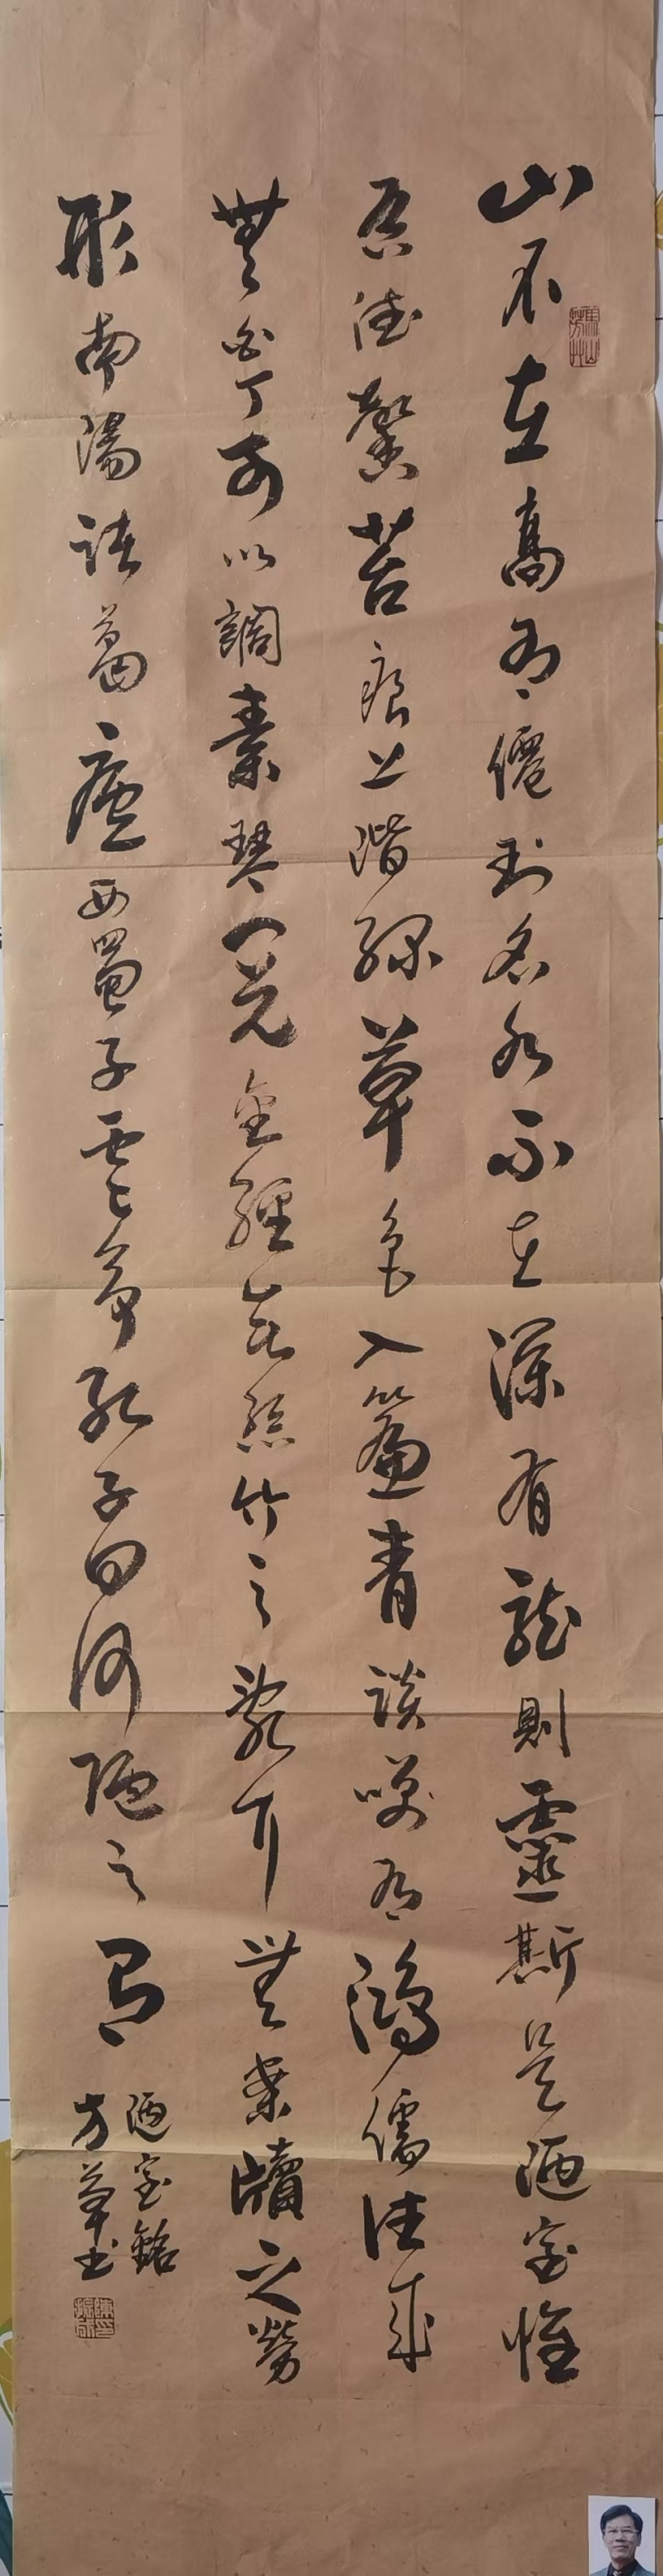 山不在高有僊則名水不在深有龍則靈斯是陋室惟
吾德馨苔痕上階綠草色入簾青談咲有鴻儒往來
無白丁可以調素琴閱金經無絲竹之亂耳無案牘之勞
形南陽諸葛廬西蜀子雲亭孔子曰何陋之有
陋室銘
方草书